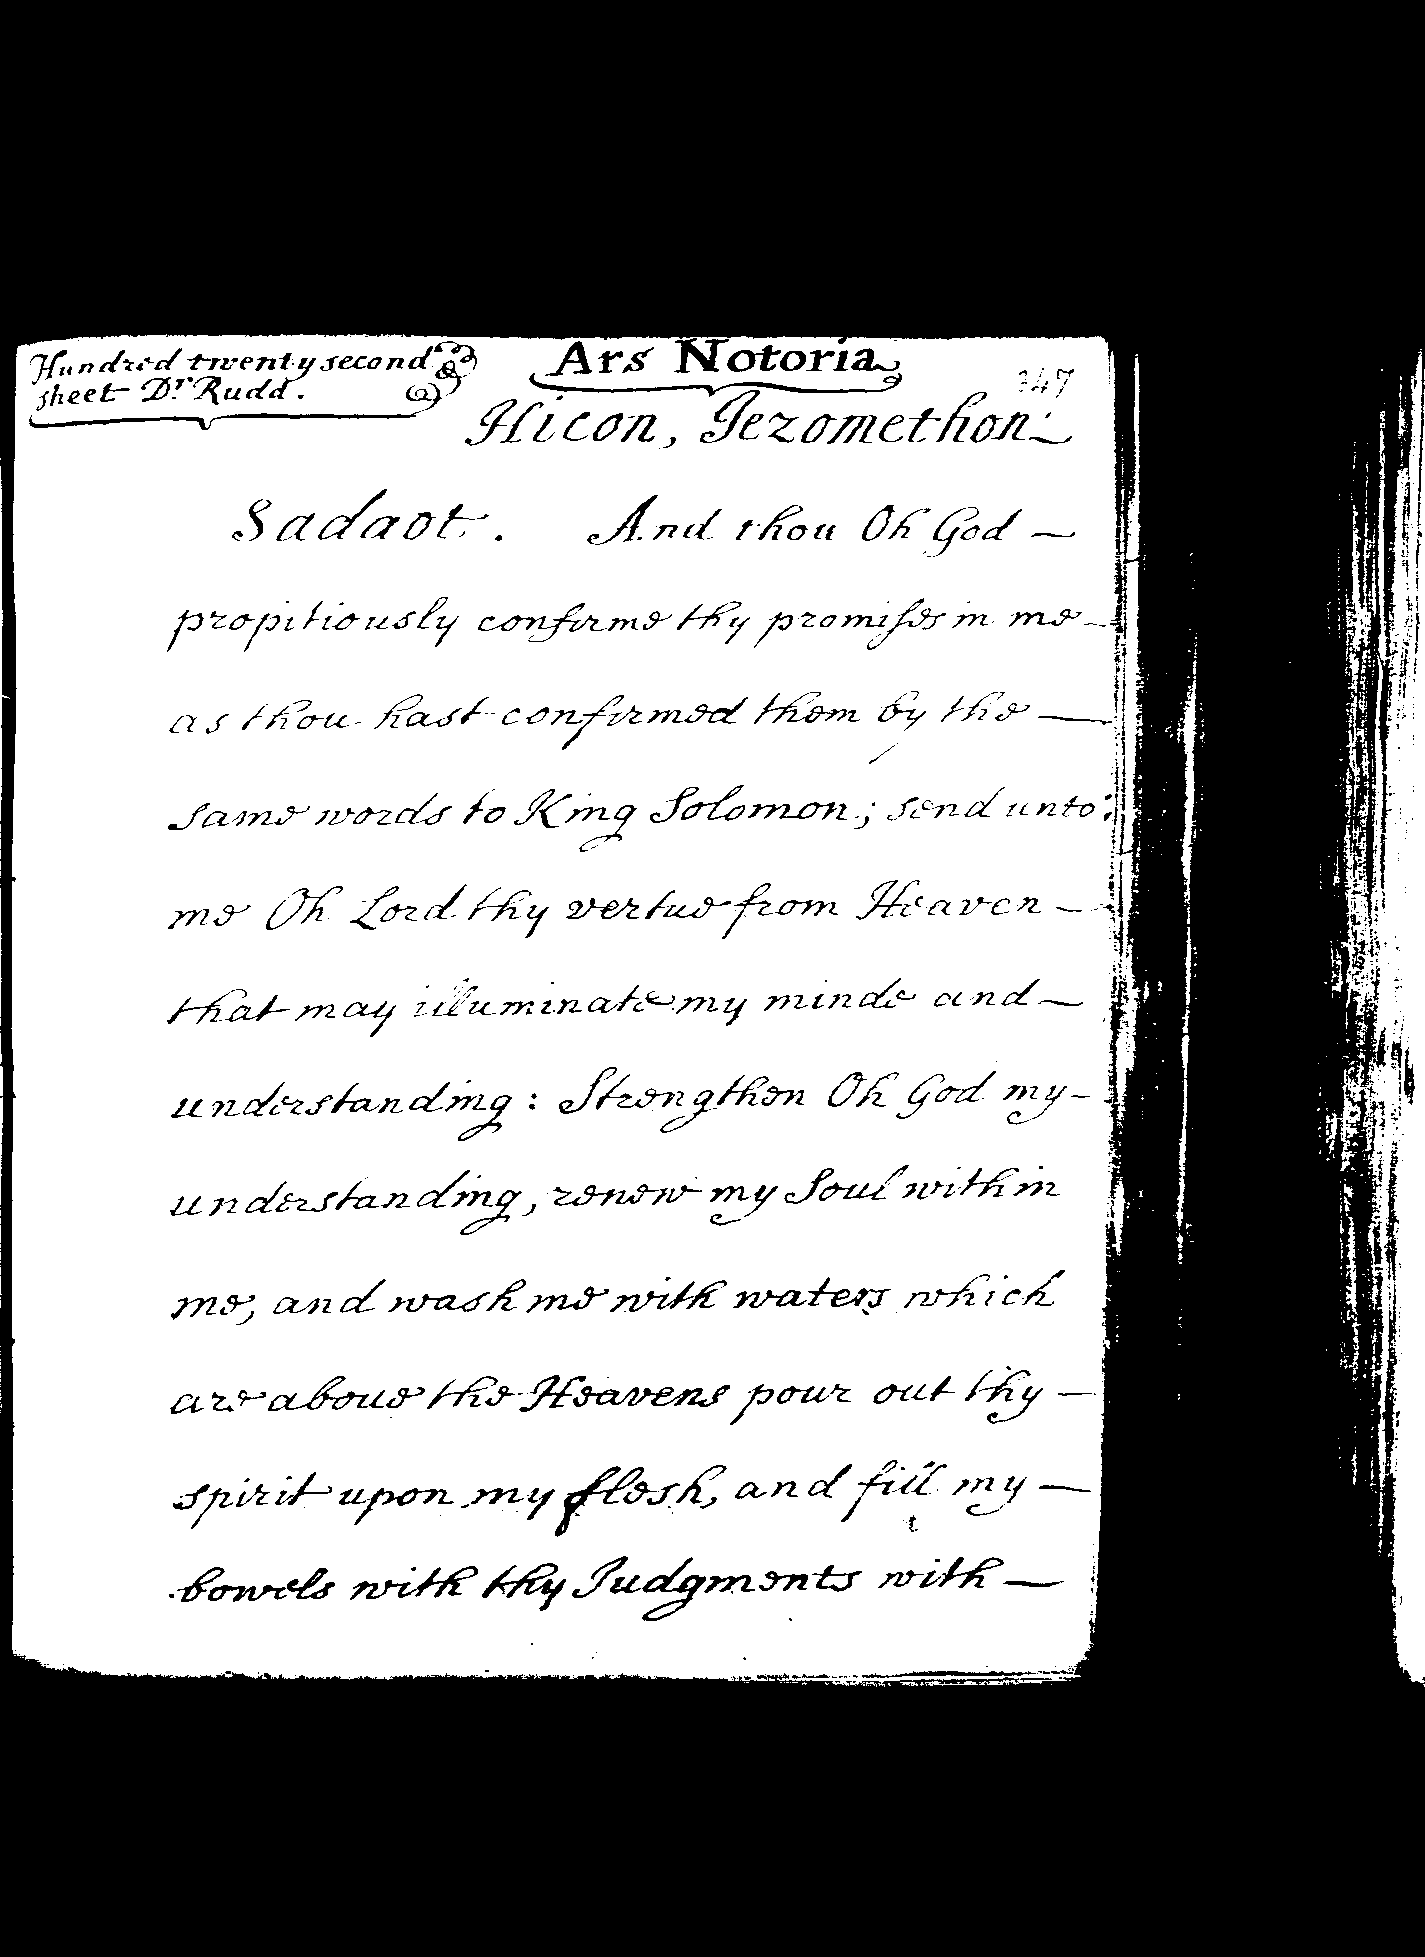 Hundred twenty second
sheet Dr Rudd.
Ars Notoria
347
Hicon, Jezomethon
Sadaot. And thou Oh God —
propitiously confirme thy promises in me —
as thou hast confirmed them by the —
same words to King Solomon; send unto:
me Oh Lord thy vertue from Heaven —
that may illuminate my minde and —
understanding: Strengthen Oh God my —
understanding, renew my Soul within
me, and wash me with waters which
are aboue the Heavens pour out thy —
spirit upon my flesh, and fill my —
bowels with thy Judgments with —